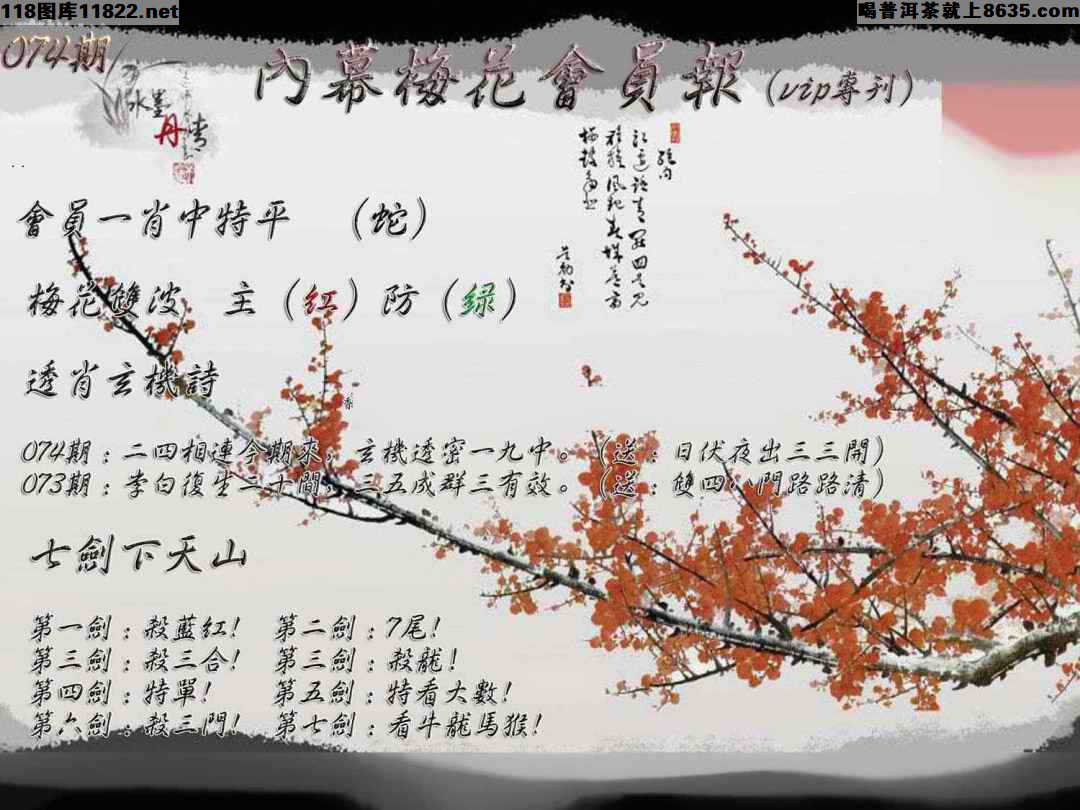 118图库11822.net
喝普洱茶就上8635.com
074期
內幕梅花會員報(vip專刊)
水墨
丹青
會員一肖中特平 （蛇）
梅花雙波 主（红）防（绿）
透肖玄機詩
074期：二四相連今期來，玄機透密一九中。（送：日伏夜出三三開）
073期：李白復生二十間，三五成群三有效。（送：雙四八門路路清）
七劍下天山
第一劍：殺藍红！ 第二劍：7尾！
第三劍：殺三合！ 第三劍：殺龍！
第四劍：特單！ 第五劍：特看大數！
第六劍：殺三門！ 第七劍：看牛龍馬猴！